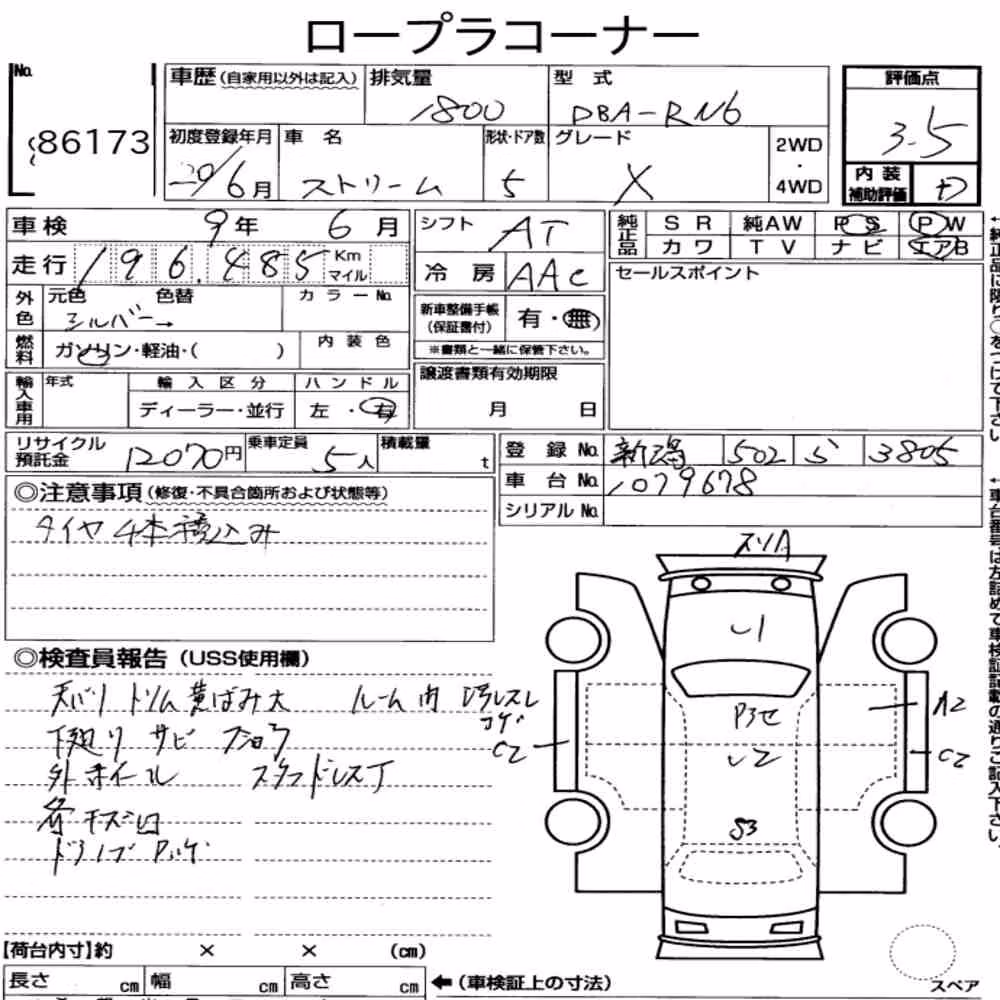 ロープラコーナー
No. 86173
車歴 (自家用以外は記入) 排気量 1800 型式 DBA-RN6 評価点 3.5
初度登録年月 20/6月 車名 ストリーム 形状・ドア数 5 グレード X 2WD・4WD
内装補助評価 D
車検 9年 6月 シフト AT 純正品 SR 純AW PS PW
カワ TV ナビ エアB
走行 196,485 Km マイル 冷房 AAC セールスポイント
外色 元色 色替 シルバー→ カラーNo. 新車整備手帳(保証書付) 有・無
※書類と一緒に保管下さい。
燃料 ガソリン・軽油・( ) 内装色
輸入車用 年式 輸入区分 ハンドル 譲渡書類有効期限
ディーラー・並行 左・右 月 日
リサイクル預託金 12070円 乗車定員 5人 積載量 t
登録No. 新潟 502 3805
車台No. 1079678
シリアルNo.
◎注意事項(修復・不具合箇所および状態等)
タイヤ4本積込み
◎検査員報告(USS使用欄)
天バリ トリム黄ばみ大 ルーム内 汚レスレ
コゲ
下廻り サビ フショク
外ホイール スタッドレスT
各キズ凹
スソA
U1
P3セ
U2
S3
A2
C2
C2
【荷台内寸】約 × × (cm)
長さ cm 幅 cm 高さ cm ←(車検証上の寸法)
スペア
←純正品に限り○をつけて下さい。
←車台番号は左詰めで車検証記載の通りご記入下さい。